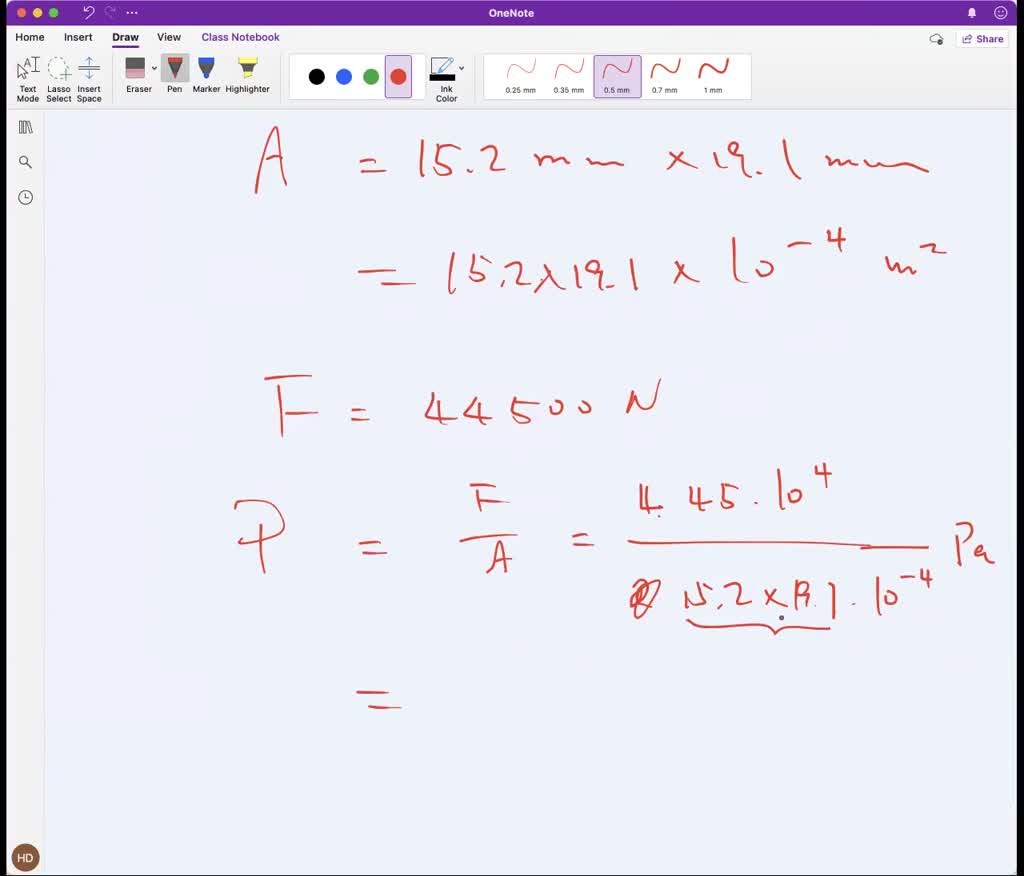 OneNote
Home Insert Draw View Class Notebook Share
Text Mode Lasso Select Insert Space Eraser Pen Marker Highlighter Ink Color 0.25 mm 0.35 mm 0.5 mm 0.7 mm 1 mm
A = 15.2 mm × 19.1 mm
= 15.2 × 19.1 × 10⁻⁴ m²
F = 44500 N
P = F/A = 4.45 · 10⁴ / 15.2 × 19.1 · 10⁻⁴ Pa
=
HD